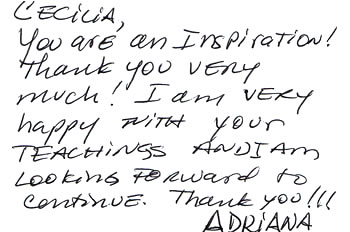 Cecilia,
You are an Inspiration!
Thank you very
much! I am very
happy with your
Teachings and I am
Looking Forward to
continue. Thank you!!!
Adriana